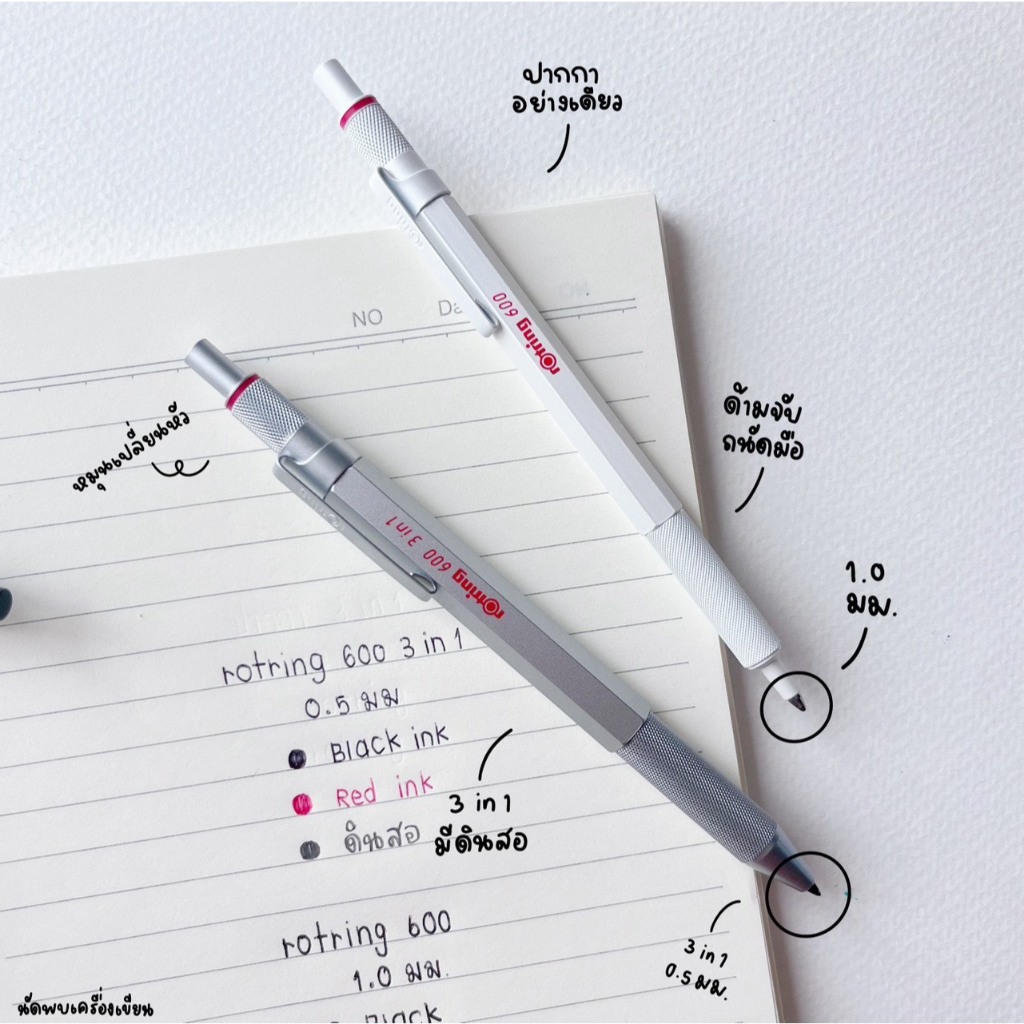 ปากกา
อย่างเดียว
NO
rotring 600
ด้ามจับ
ถนัดมือ
หมุนเปลี่ยนหัว
rotring 600 3 in 1
1.0
มม.
rotring 600 3 in 1
0.5 มม
Black ink
Red ink
ดินสอ
3 in 1
มีดินสอ
rotring 600
1.0 มม.
Black
3 in 1
0.5 มม.
นัดพบเครื่องเขียน